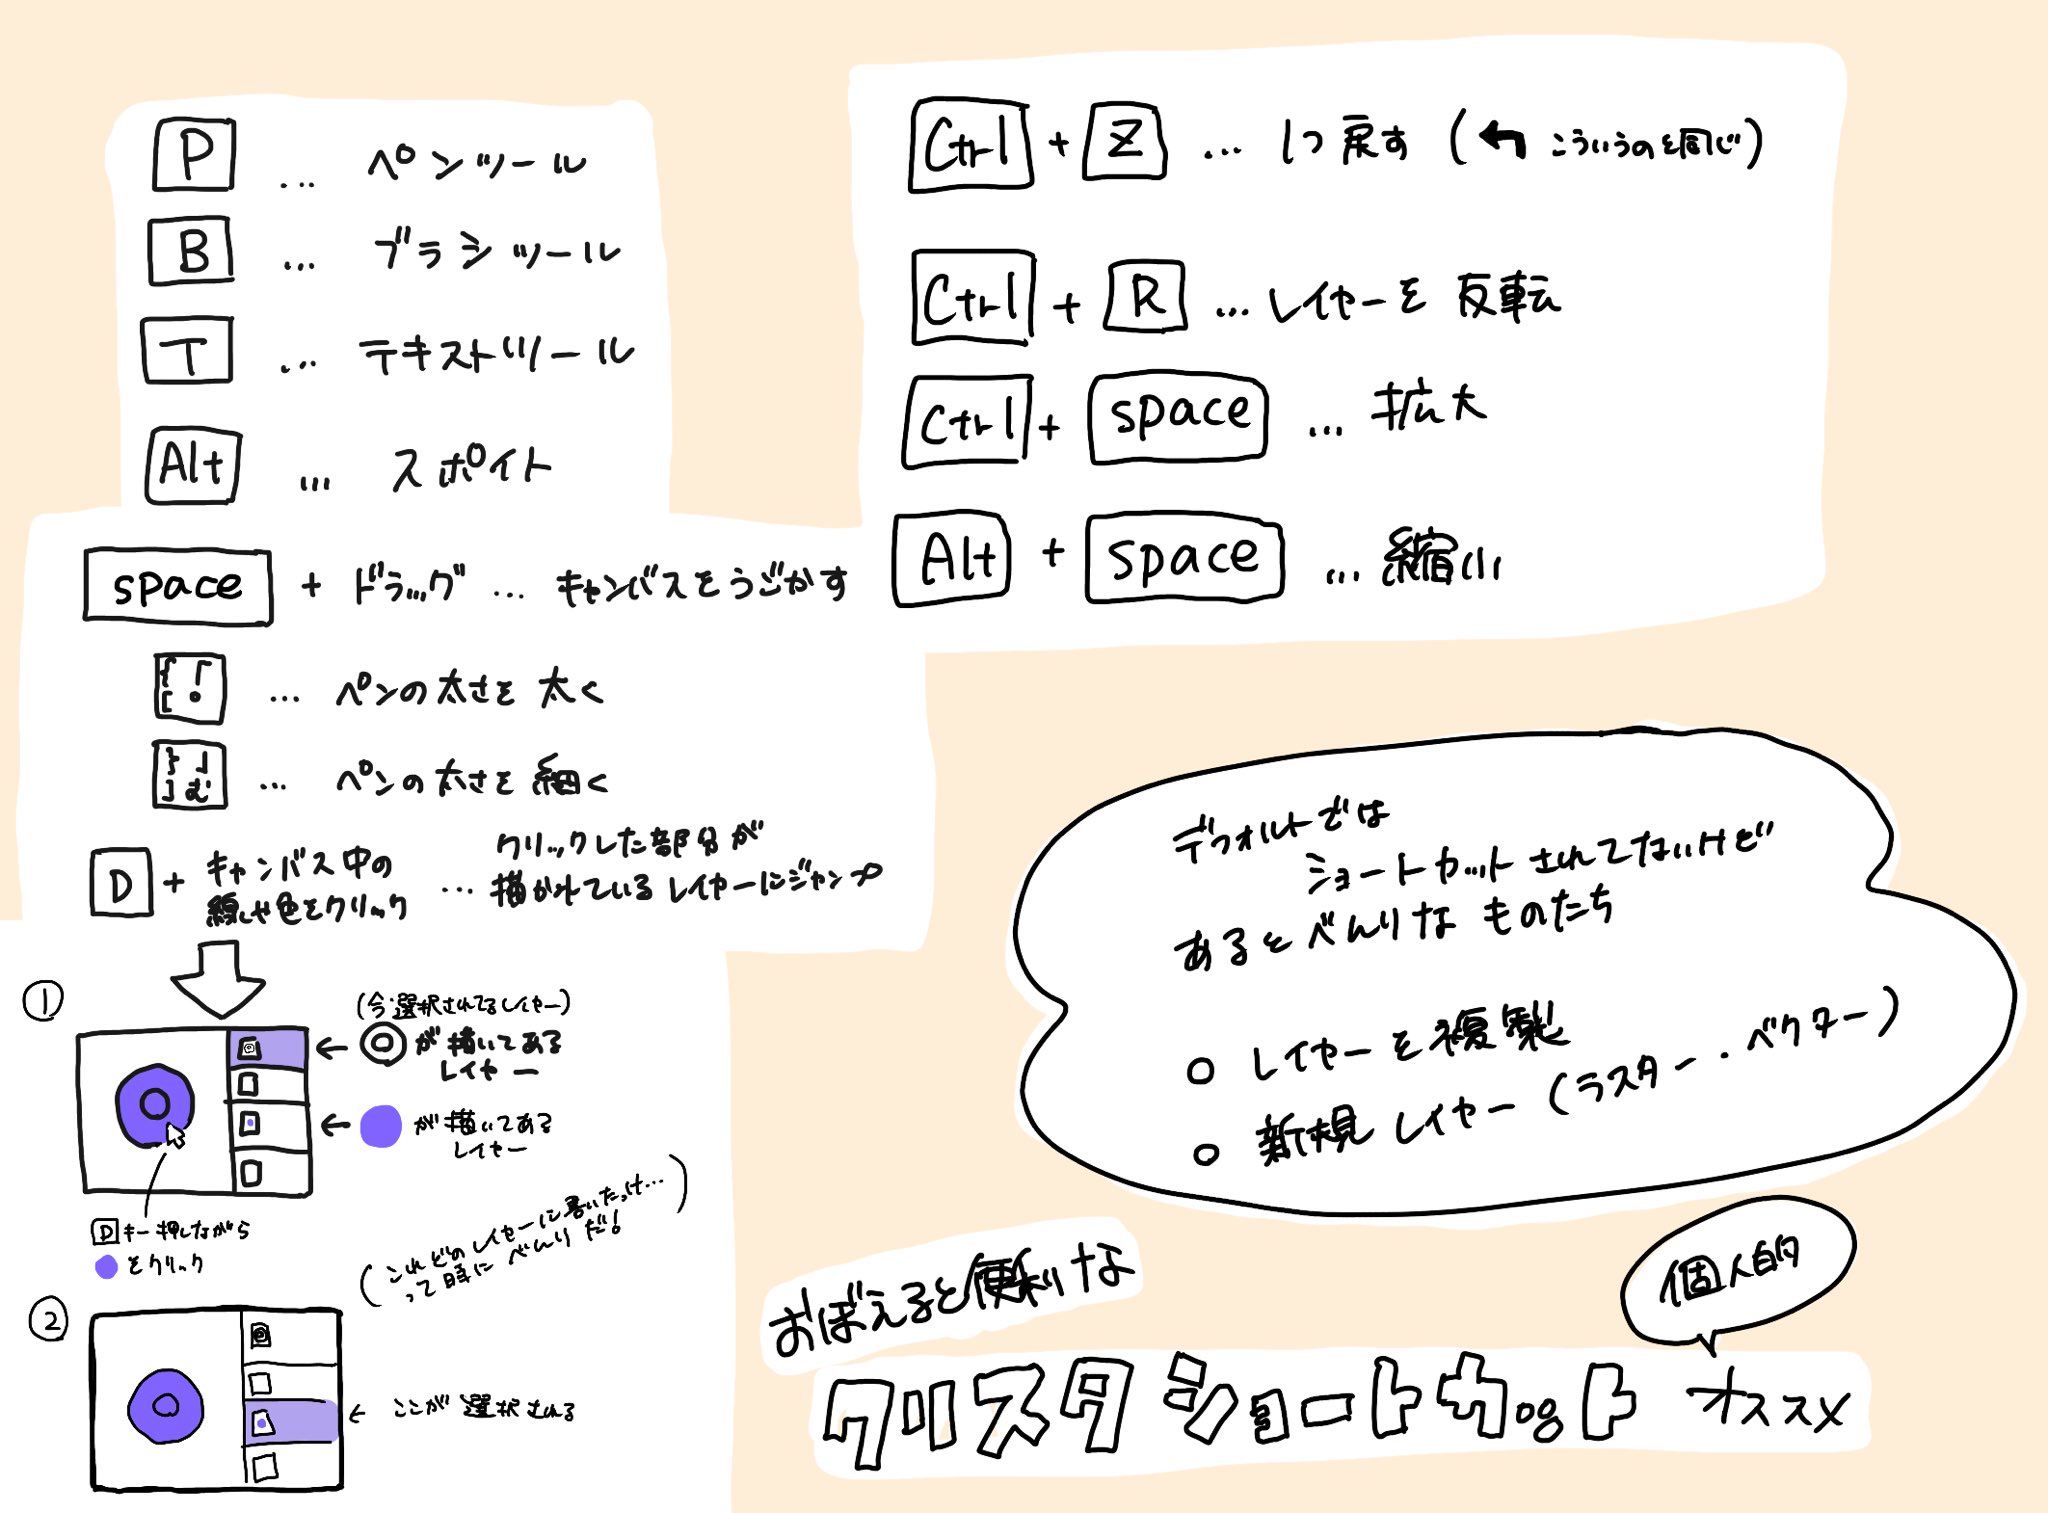 P … ペンツール
B … ブラシツール
T … テキストツール
Alt … スポイト
space + ドラッグ … キャンバスをうごかす
{ 「 [ 。 … ペンの太さを太く
} 」 ] む … ペンの太さを細く
D + キャンバス中の線や色をクリック … クリックした部分が描かれているレイヤーにジャンプ
①
(今選択されてるレイヤー)
◎が描いてある
レイヤー
が描いてある
レイヤー
Dキー押しながら
をクリック
(これどのレイヤーに書いたっけ…
って時にべんりだ!)
②
ここが選択される
Ctrl + Z … 1つ戻す (↰ こういうのと同じ)
Ctrl + R … レイヤーを反転
Ctrl + space … 拡大
Alt + space … 縮小
デフォルトでは
ショートカットされてないけど
あるとべんりなものたち
○ レイヤーを複製
○ 新規レイヤー(ラスター・ベクター)
おぼえると便利な
クリスタショートカット オススメ
個人的